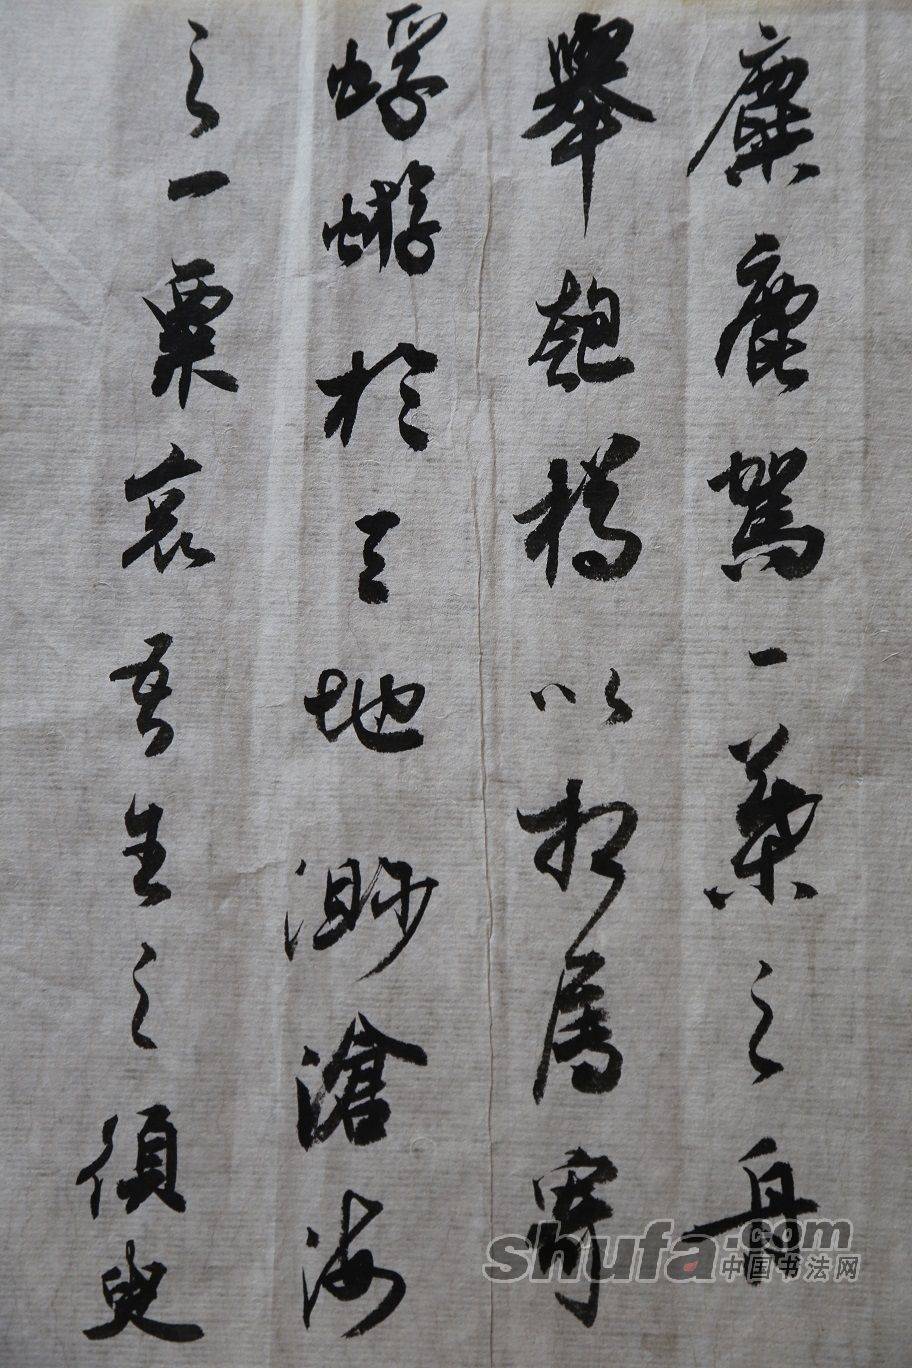 麋鹿駕一葉之舟
舉匏樽以相屬寄
蜉蝣於天地渺滄海
之一粟哀吾生之須臾
shufa.com
中国书法网